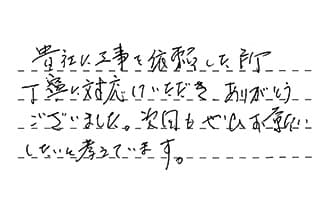 貴社に工事を依頼した所
丁寧に対応いただき、ありがとう
ございました。次回もぜひお願い
したいと考えています。